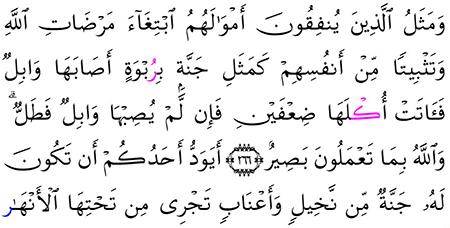 وَمَثَلُ ٱلَّذِينَ يُنفِقُونَ أَمْوَٰلَهُمُ ٱبْتِغَآءَ مَرْضَاتِ ٱللَّهِ
وَتَثْبِيتًا مِّنْ أَنفُسِهِمْ كَمَثَلِ جَنَّةٍۭ بِرُبْوَةٍ أَصَابَهَا وَابِلٌ
فَـَٔاتَتْ أُكْلَهَا ضِعْفَيْنِ فَإِن لَّمْ يُصِبْهَا وَابِلٌ فَطَلٌّ ۗ
وَٱللَّهُ بِمَا تَعْمَلُونَ بَصِيرٌ ﴿٢٦٦﴾ أَيَوَدُّ أَحَدُكُمْ أَن تَكُونَ
لَهُۥ جَنَّةٌ مِّن نَّخِيلٍ وَأَعْنَابٍ تَجْرِى مِن تَحْتِهَا ٱلْأَنْهَـٰر